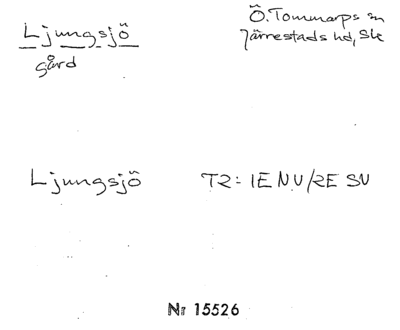 Ljungsjö
gård
Ö. Tommarps sn
Järrestads hd, Sk
Ljungsjö TR: IE NV/RE SV
Nr 15526